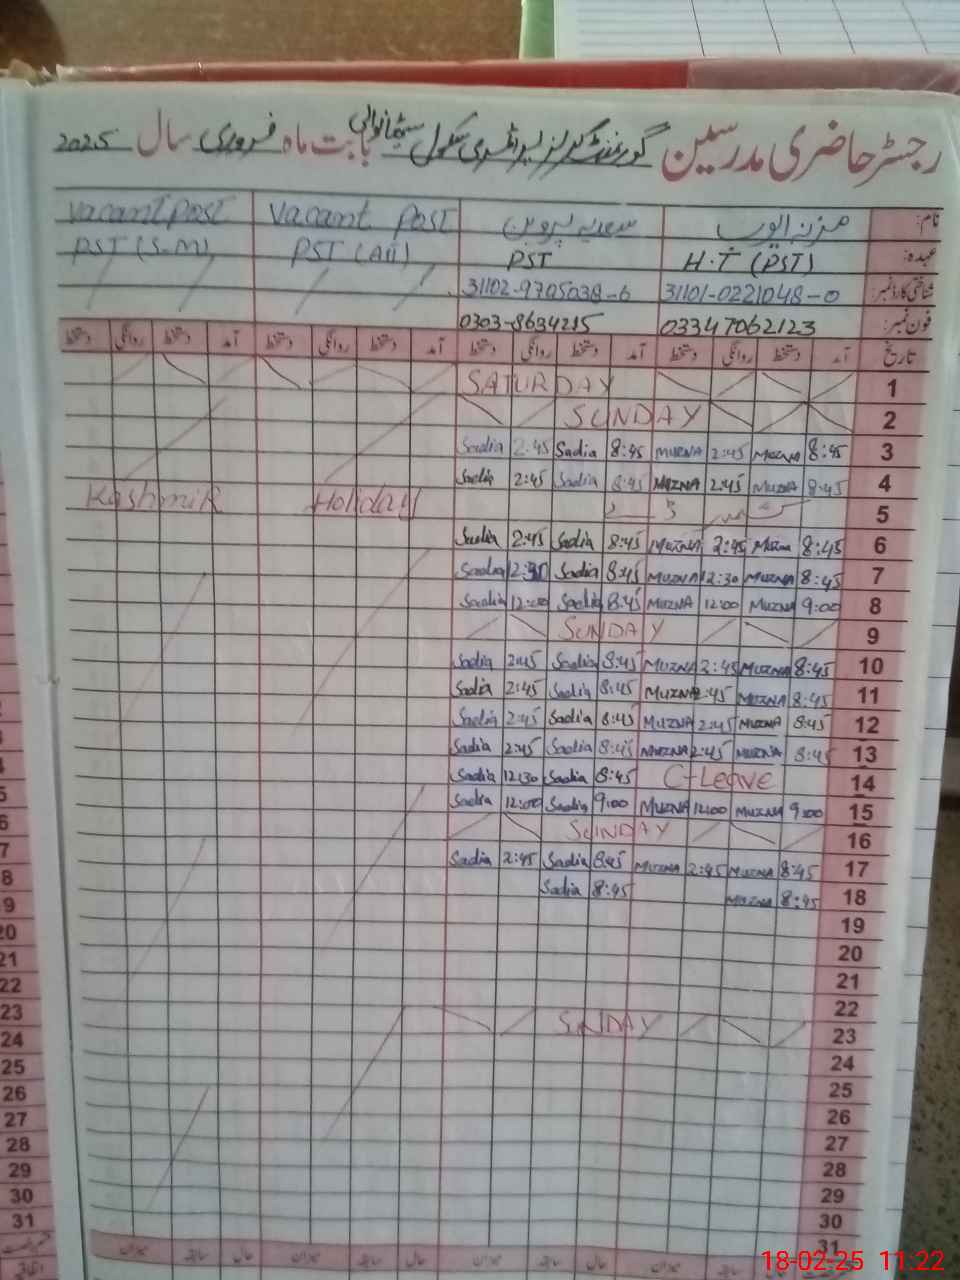 رجسٹر حاضری مدرسین گورنمنٹ گرلز پرائمری سکول بابت ماہ فروری سال 2025
نام: مزنہ ایوب سعدیہ پروین Vacant Post Vacant Post
عہدہ: H.T (PST) PST PST (Arl) PST (S.M)
شناختی کارڈ نمبر: 31101-0221048-0 31102-9705038-6
فون نمبر: 03347062123 0303-8634215
تاریخ آمد دستخط روانگی دستخط آمد دستخط روانگی دستخط آمد دستخط روانگی دستخط آمد دستخط روانگی دستخط
1 SATURDAY
2 SUNDAY
3 8:45 MUZNA 2:45 MUZNA 8:45 Sadia 2:45 Sadia
4 8:45 MUZNA 2:45 MUZNA 8:45 Sadia 2:45 Sadia
5 Kashmir Holiday
6 8:45 Muzna 2:45 MUZNA 8:45 Sadia 2:45 Sadia
7 8:45 MUZNA 12:30 MUZNA 8:45 Sadia 12:30 Sadia
8 9:00 MUZNA 12:00 MUZNA 8:45 Sadia 12:00 Sadia
9 SUNDAY
10 8:45 MUZNA 2:45 MUZNA 8:45 Sadia 2:45 Sadia
11 8:45 MUZNA 2:45 MUZNA 8:45 Sadia 2:45 Sadia
12 8:45 MUZNA 2:45 MUZNA 8:45 Sadia 2:45 Sadia
13 8:45 MUZNA 2:45 MUZNA 8:45 Sadia 2:45 Sadia
14 C-Leave 8:45 Sadia 12:30 Sadia
15 9:00 MUZNA 12:00 MUZNA 9:00 Sadia 12:00 Sadia
16 SUNDAY
17 8:45 MUZNA 2:45 MUZNA 8:45 Sadia 2:45 Sadia
18 8:45 MUZNA 8:45 Sadia
19
20
21
22
23 SUNDAY
24
25
26
27
28
29
30
31
18-02-25 11:22